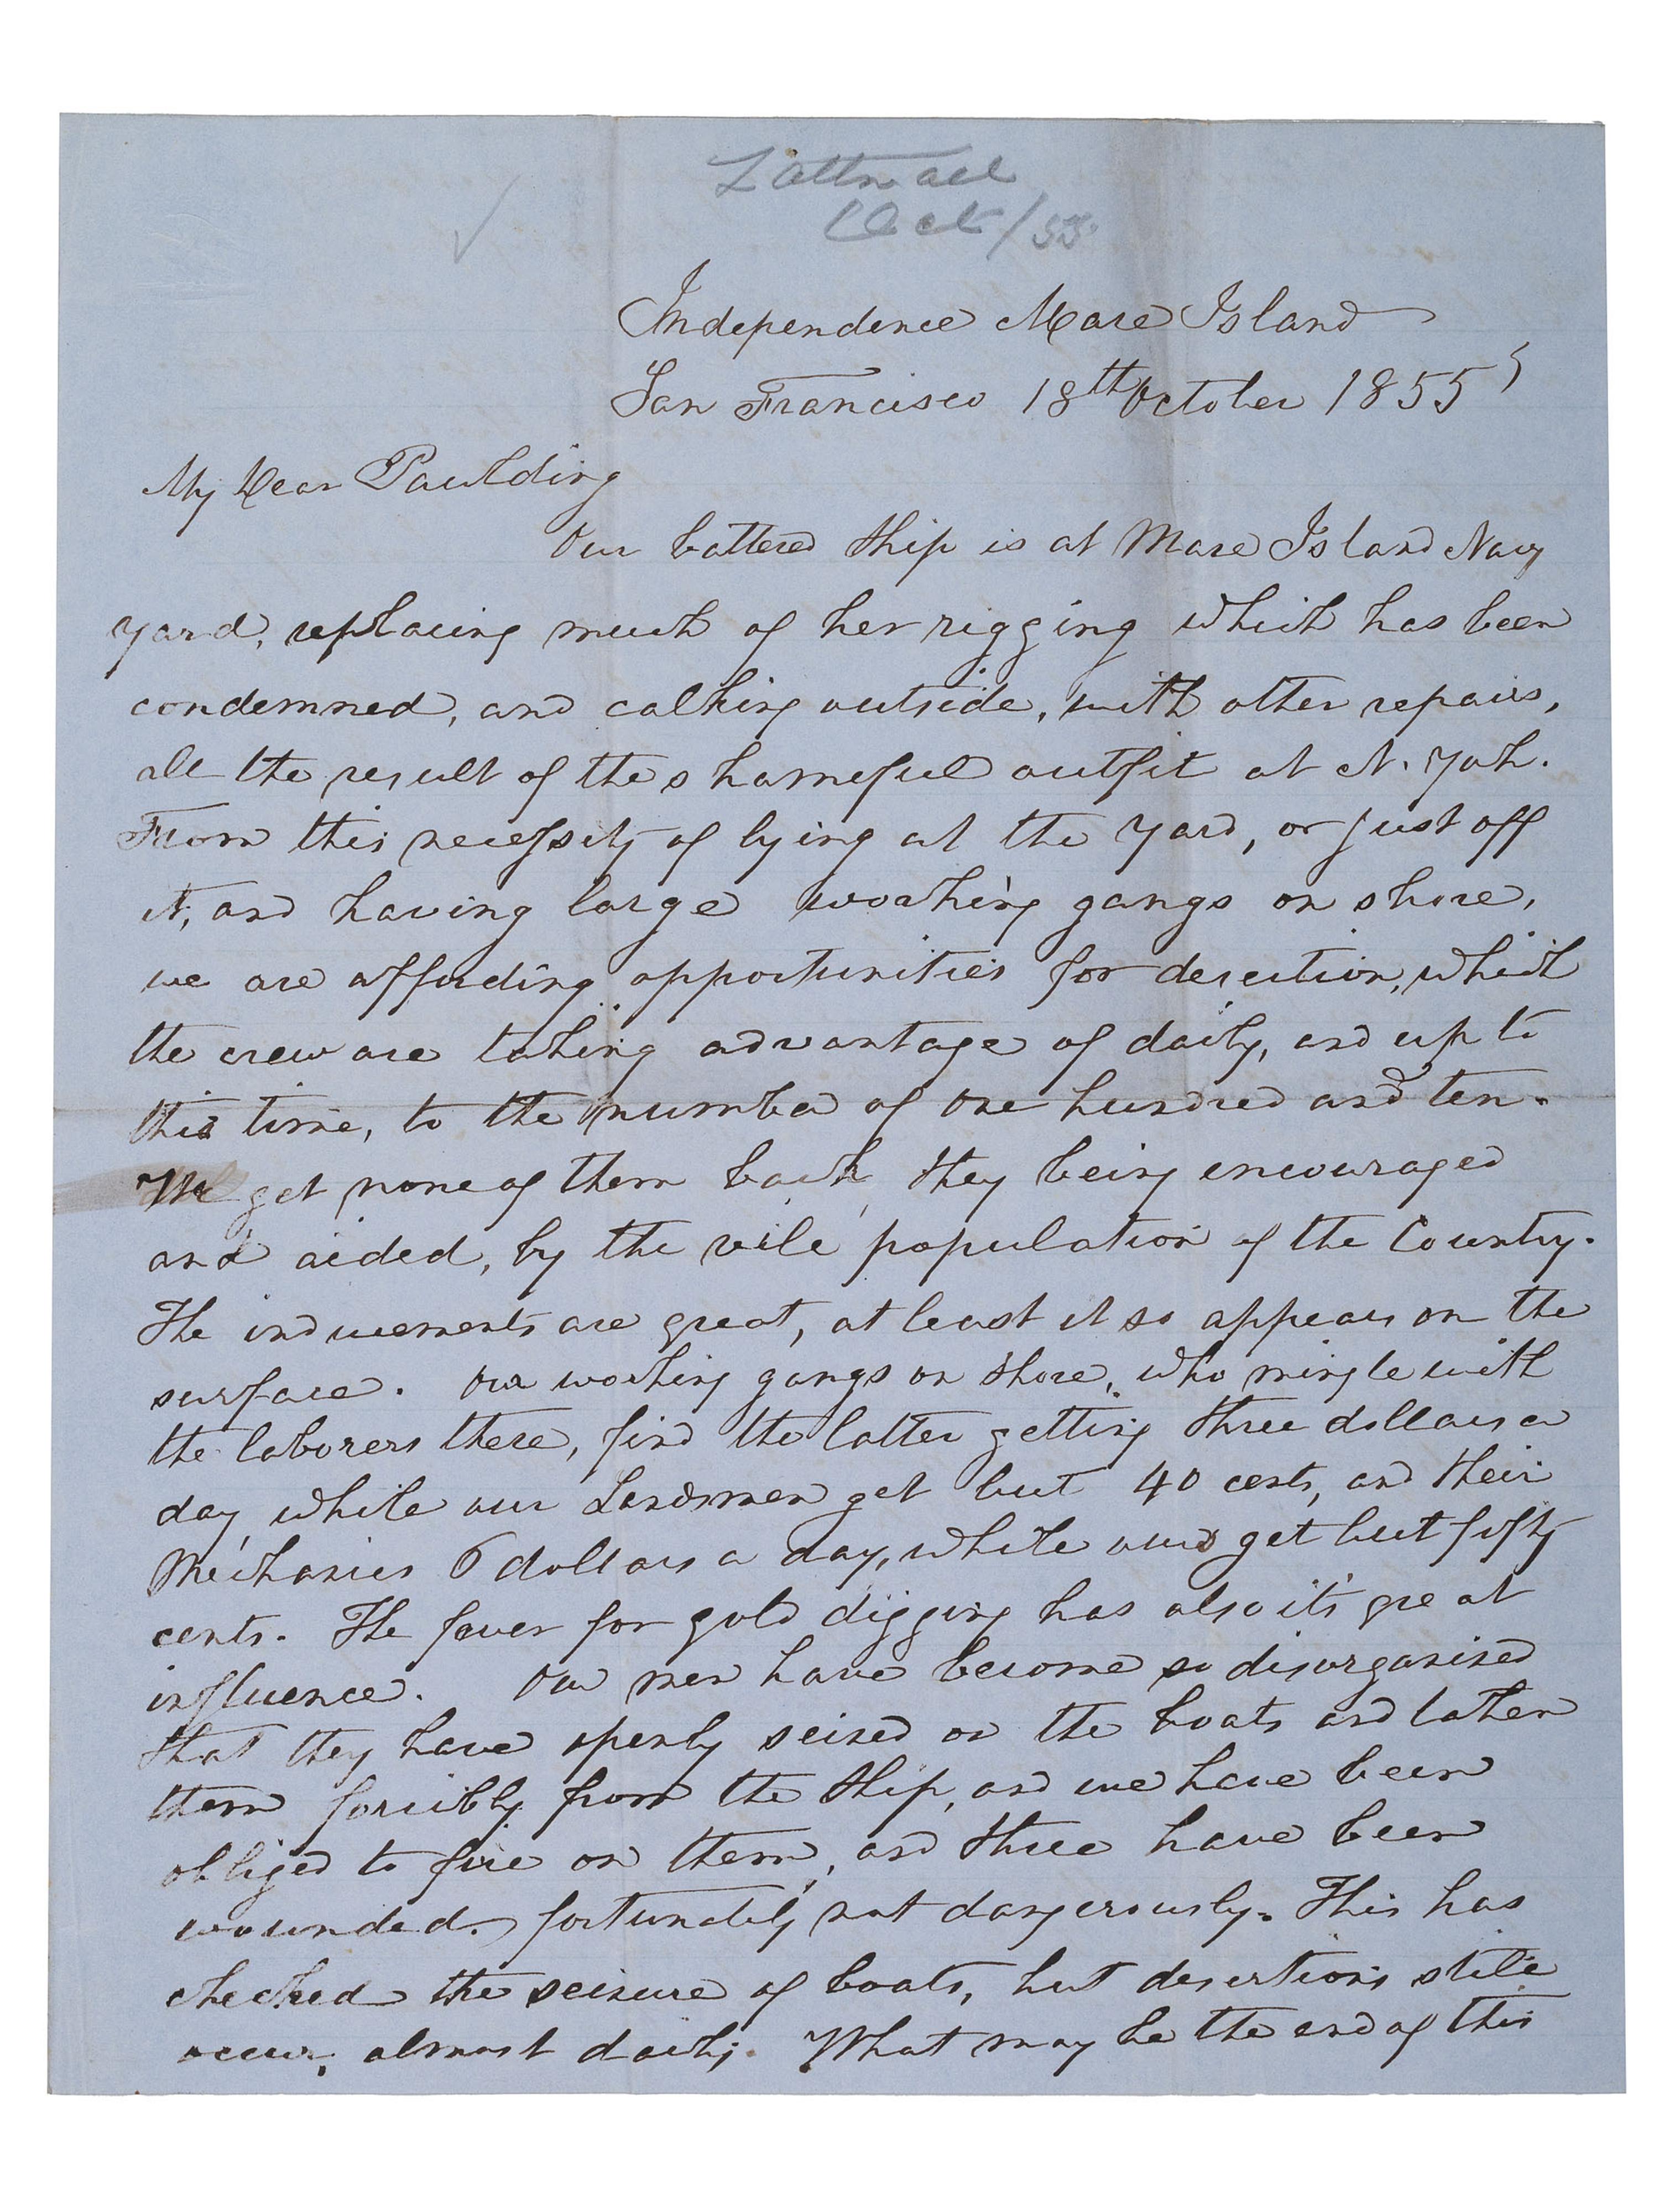 Oct/55
Independence Mare Island
San Francisco 18th October 1855
My Dear Paulding
Our battered ship is at Mare Island Navy
yard, replacing much of her rigging which has been
condemned, and calking outside, with other repairs,
all the result of the shameful outfit at N. York.
From this necessity of lying at the yard, or just off
it, and having large working gangs on shore,
we are affording opportunities for desertion, which
the crew are taking advantage of daily, and up to
this time, to the number of one hundred and ten.
We get none of them back, they being encouraged
and aided, by the vile population of the Country.
The inducements are great, at least it so appears on the
surface. Our working gangs on shore, who mingle with
the laborers there, find the latter getting three dollars a
day, while our Landsmen get but 40 cents, and their
Mechanics 6 dollars a day, while ours get but fifty
cents. The fever for gold digging has also it's great
influence. Our men have become so disorganised
that they have openly seized on the boats and taken
them forcibly from the ship, and we have been
obliged to fire on them, and three have been
wounded, fortunately not dangerously. This has
checked the seizure of boats, but desertions still
occur, almost daily. What may be the end of this